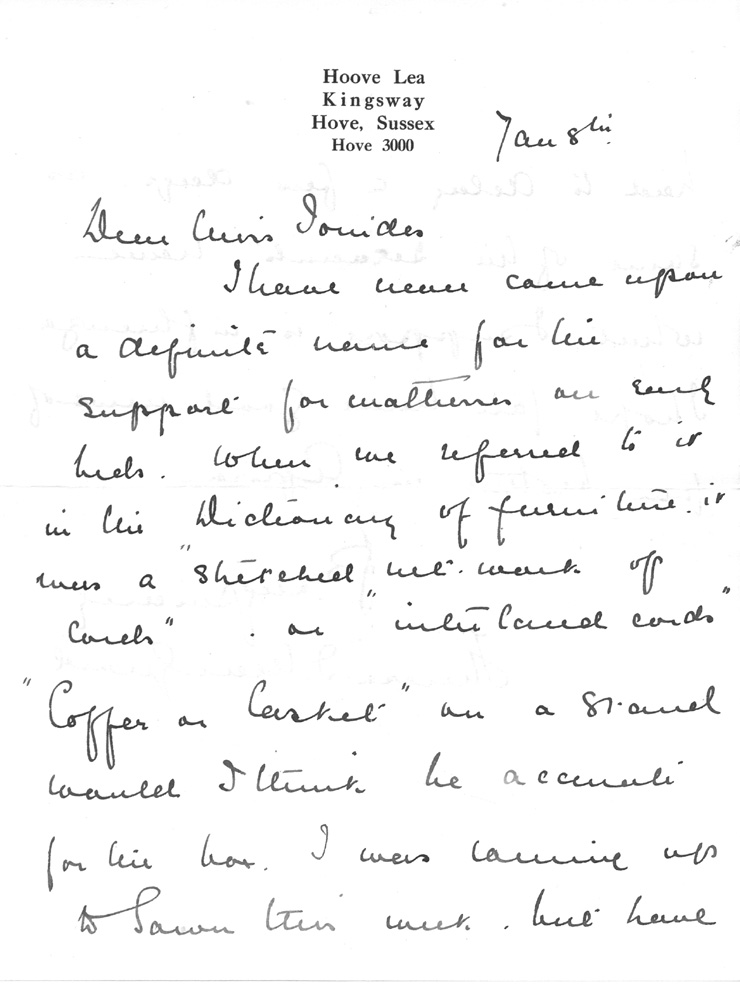 Hoove Lea
Kingsway
Hove, Sussex
Hove 3000
Jan 8th.
Dear Miss Ionides
I have never come upon
a definite name for the
support for mattress on early
beds. When we referred to it
in the Dictionary of furniture. it
was a "stretched net-work of
cords" . or "interlaced cords"
"Coffer or Casket" on a stand
would I think be accurate
for the box. I was coming up
to Town this week . but have